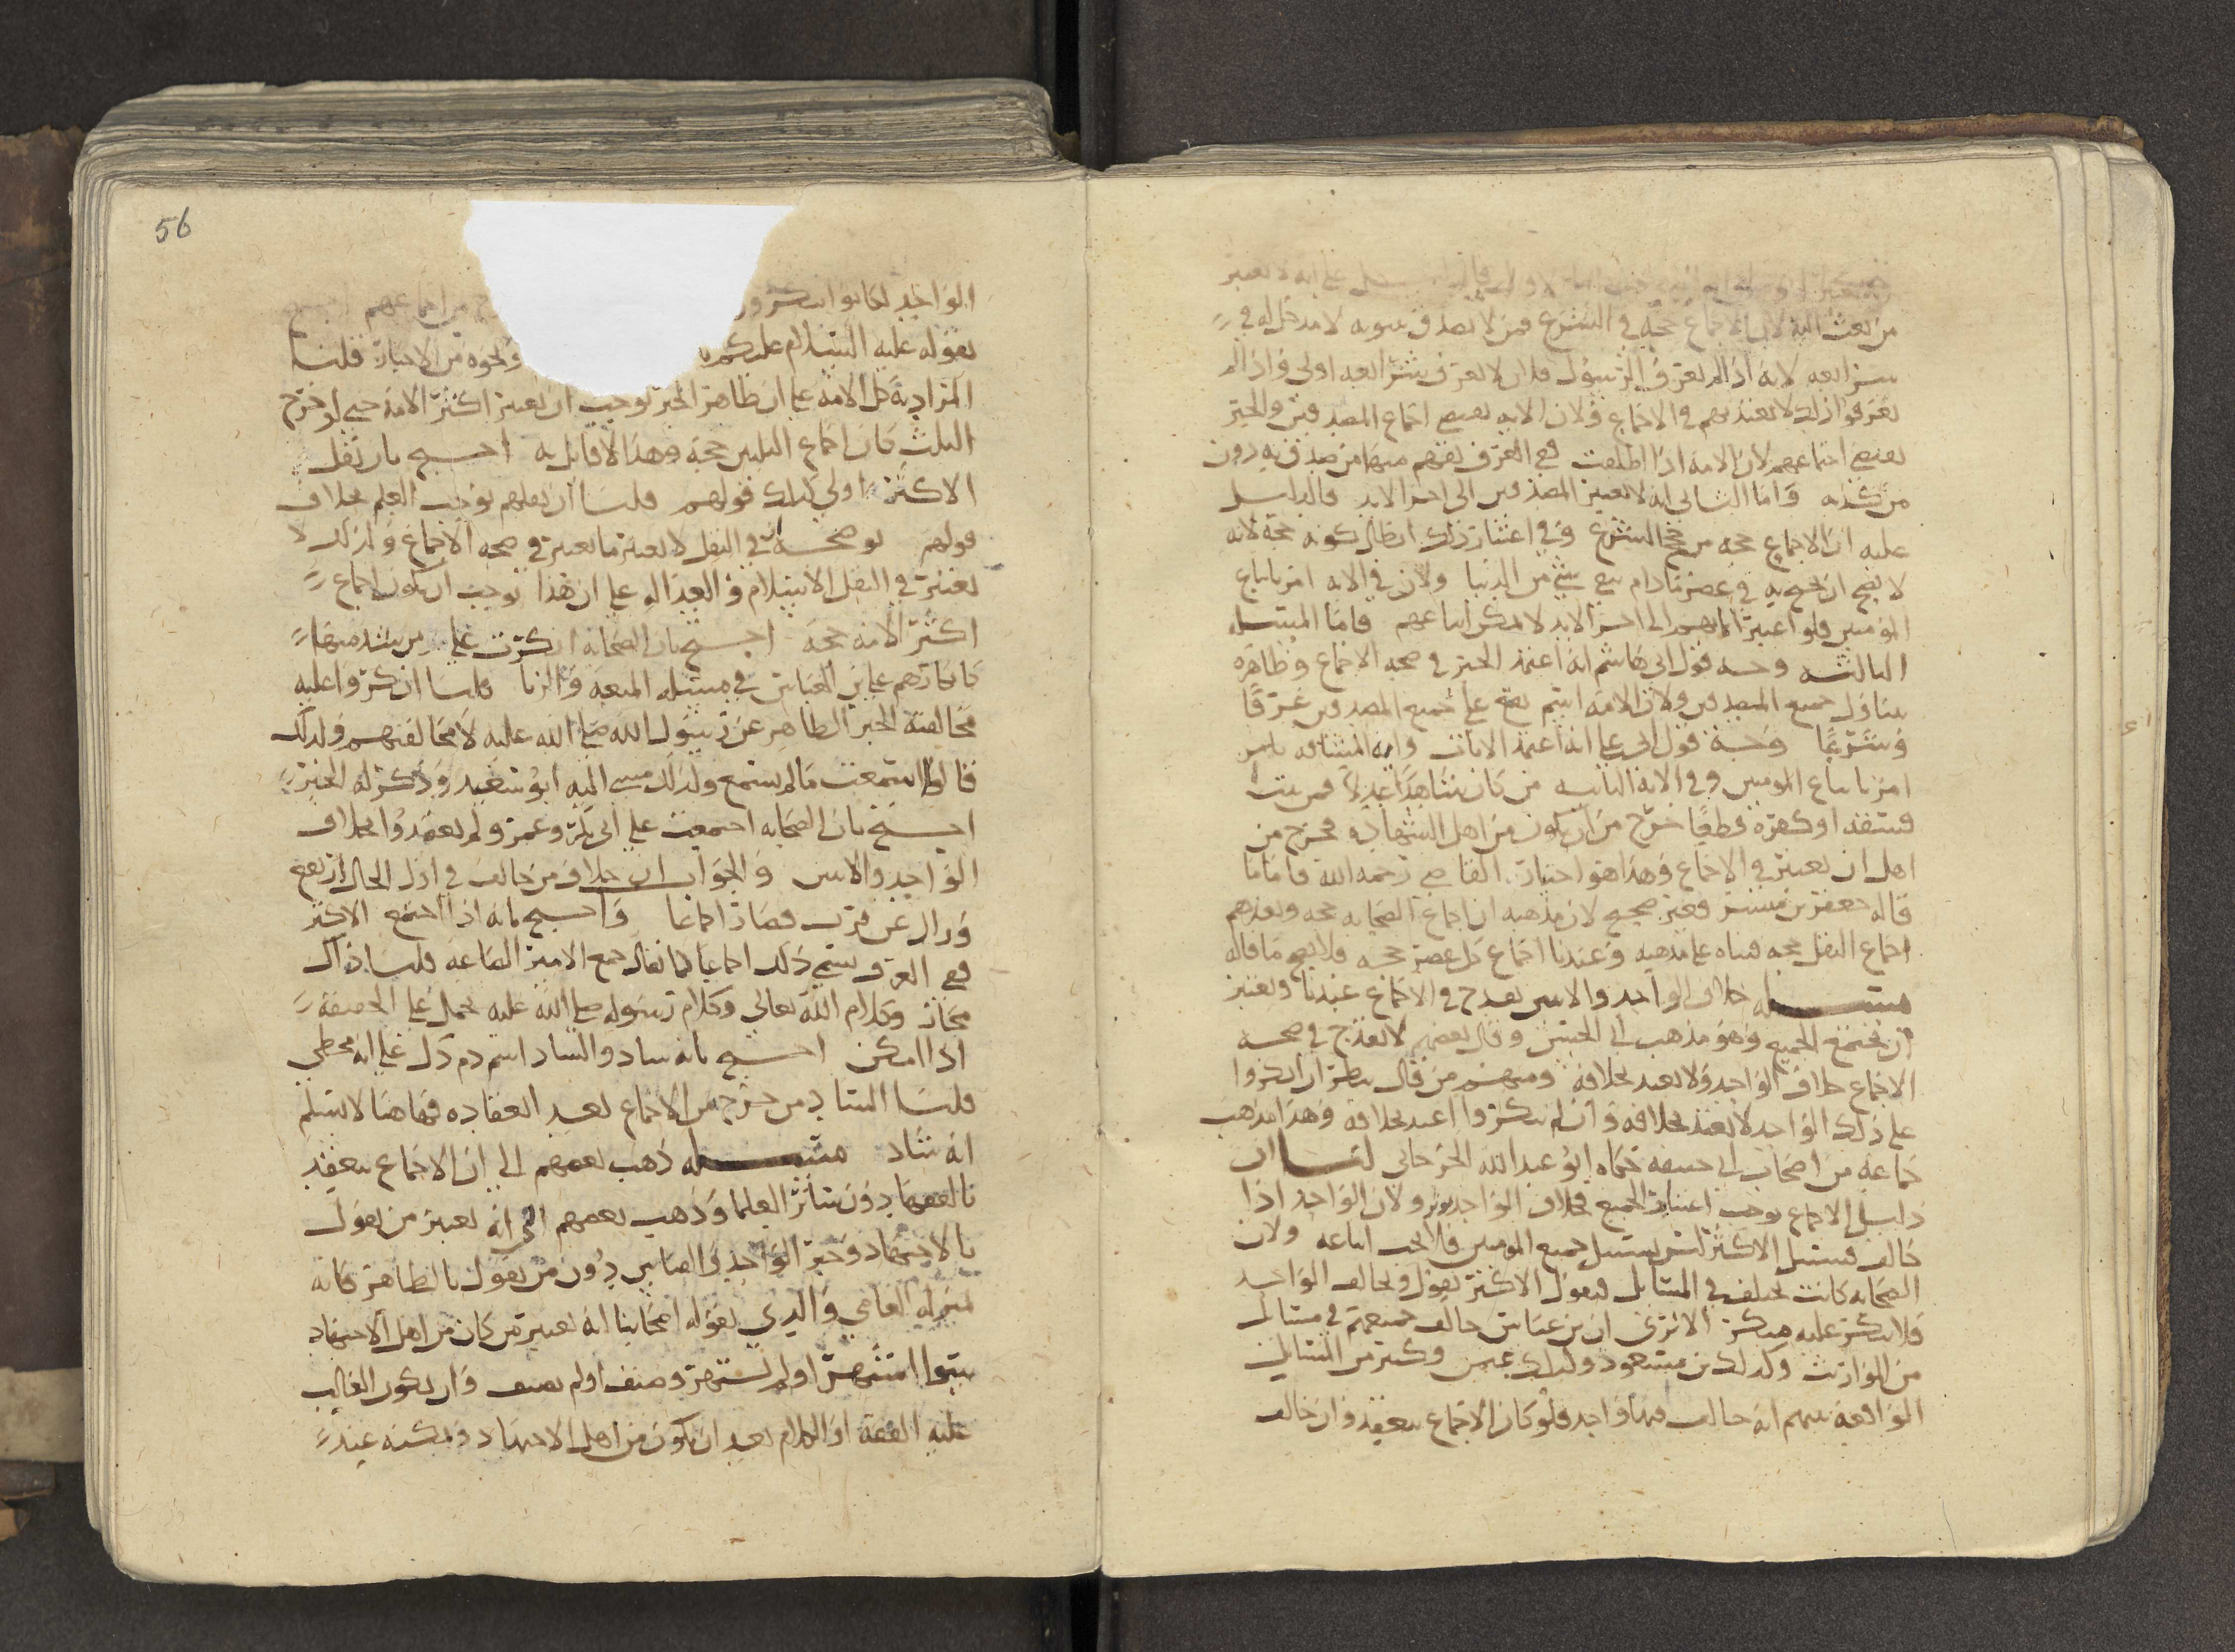 من بعث اليه لان الاجماع حجة في الشرع فمن لا يصدق بنبوته لا مدخل له في
شرايعه لانه اذا لم يعرف الرسول فلان لا يعرف شرايعه اولى واذا لم
يعرفوا ذلك لا يعتد بهم في الاجماع ولان الايه تقتضي اجماع المصدقين والخبر
يقتضي اجماعهم لان الامة اذا اطلقت ففي العرف يفهم منها من صدق به دون
من كذبه واما الثاني انه لا يعتبر المصدقين الى اخر الابد فالدليل
عليه ان الاجماع حجه من حجج الشرع وفي اعتبار ذلك ابطال كونه حجة لانه
لا يصح ان يحتج به في عصر ما دام يبقى شي من الدنيا ولان في الايه امر باتباع
المومنين فلو اعتبرنا الى اخر الابد لا يمكن اتباعهم فاما المسله
الثالثه وجه قول ابي هاشم انه اعتمد الخبر في صحه الاجماع وظاهره
يتناول جميع المصدقين ولان الامة اسم يقع على جميع المصدقين عرفا
وشرعا وجه قول ابي علي انه اعتمد الايات وايه المشاقه
امر باتباع المومنين وفي الايه الثانيه من كان شاهدا عدلا فمن ثبت
فسقه او كفره قطعا خرج من ان يكون من اهل الشهاده فخرج من
اهل ان يعتبر في الاجماع وهذا هو اختيار القاضي رحمه الله فاما ما
قاله جعفر بن مبشر فغير صحيح لان مذهبه ان اجماع الصحابه حجه وبعدهم
اجماع النقل حجه فبناه على مذهبه وعندنا اجماع كل عصر حجه فلا يصح ما قاله
مسله خلاف الواحد والاثنين يقدح في الاجماع عندنا ويعتبر
ان يجتمع الجميع وهو مذهب ابي الحسن وقال بعضهم لا يقدح في صحه
الاجماع خلاف الواحد ولا يعتد بخلافه ومنهم من قال ينظر ان انكروا
على ذلك الواحد لا يعتد بخلافه وان لم ينكروا اعتد بخلافه وهذا مذهب
جماعه من اصحاب ابي حنيفه حكاه ابو عبد الله الجرجاني لنا ان
دليل الاجماع يوجب اعتبار الجميع فخلاف الواحد يوثر ولان الواحد اذا
خالف فسبيل الاكثر ليس بسبيل جميع المومنين فلا يجب اتباعه ولان
الصحابه كانت تختلف في المسايل فيقول الاكثر بقول ويخالف الواحد
فلا ينكر عليه منكر الا ترى ان بن عباس خالف جميعهم في مسايل
من المواريث وكذلك بن مسعود وكذلك عمر وكثير من المسايل
الواقعة بينهم انه خالف فيها واحد فلو كان الاجماع ينعقد وان خالف
56
الواحد لكانوا ينكرون من اجماعهم احتج
بقوله عليه السلام عليكم ونحوه من الاخبار قلنا
المراد به كل الامة على ان ظاهر الخبر يوجب ان يعتبر اكثر الامة حتى لو خرج
الثلث كان اجماع الثلثين حجة وهذا لا قايل به احتج بان نقل
الاكثر اولى كذلك قولهم قلنا ان نقلهم يوجب العلم بخلاف
قولهم يوضحه ان في النقل لا يعتبر ما يعتبر في صحه الاجماع وكذلك لا
يعتبر في النقل الاسلام والعداله على ان هذا يوجب ان يكون اجماع
اكثر الامة حجه احتج بان الصحابه انكرت على من شذ منها
كانكارهم على بن العباس في مسله المتعة والربا قلنا انكروا عليه
مخالفة الخبر الظاهر عن رسول الله صلى الله عليه لا مخالفتهم ولذلك
قالوا اسمعت ما لم نسمع ولذلك مشى اليه ابو سعيد وذكر له الخبر
احتج بان الصحابه اجتمعت على ابي بكر وعمر ولم يعتدوا بخلاف
الواحد والاثنين والجواب ان خلاف من خالف في اول الحال ارتفع
وزال عن قرب فصار اجماعا واحتج بانه اذا اجتمع الاكثر
ففي العرف سمي ذلك اجماعا كما يقال جمع الامير الصاغه قلنا ذلك
مجاز وكلام الله تعالى وكلام رسوله صلى الله عليه يحمل على الحقيقة
اذا امكن احتج بانه شاذ والشاذ اسم ذم دل على انه مخطي
قلنا الشاذ من خرج من الاجماع بعد انعقاده فهاهنا لا نسلم
انه شاذ مسله ذهب بعضهم الى ان الاجماع ينعقد
بالفقها دون سائر العلما وذهب بعضهم الى انه يعتبر من يقول
بالاجتهاد وخبر الواحد والقياس دون من يقول بالظاهر فانه
بمنزله العامي والذي يقوله اصحابنا انه يعتبر من كان من اهل الاجتهاد
سوا اشتهر او لم يشتهر وصنف او لم يصنف وان يكون الغالب
عليه الفقه او الكلام بعد ان يكون من اهل الاجتهاد ويمكنه عند